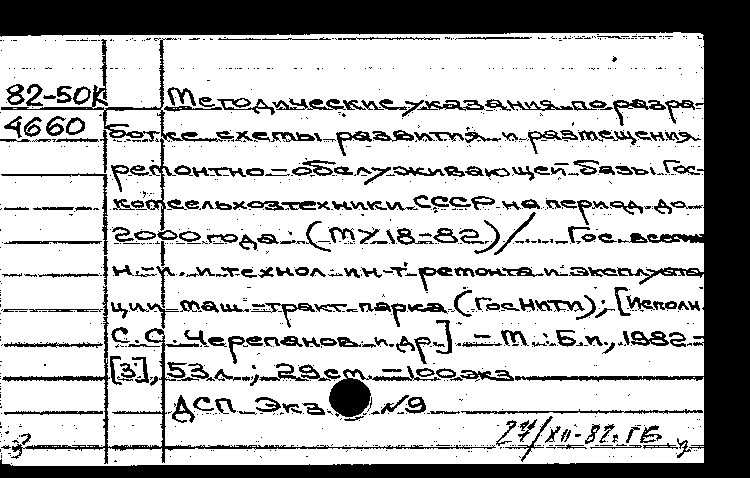 82-50К Методические указания по разра-
4660 ботке схемы развития и размещения
ремонтно-обслуживающей базы Гос-
комсельхозтехники СССР на период до
2000 года : (МУ 18-82) / Гос. всесоюз
н.-и. и технол. ин-т ремонта и эксплуата
ции маш.-тракт. парка (ГосНИТИ); [Исполн.
С.С. Черепанов и др.] - М. : Б.и., 1982 -
[3], 53 л. ; 29 см. - 100 экз
ДСП Экз №9
27/XII-82. ГБ.